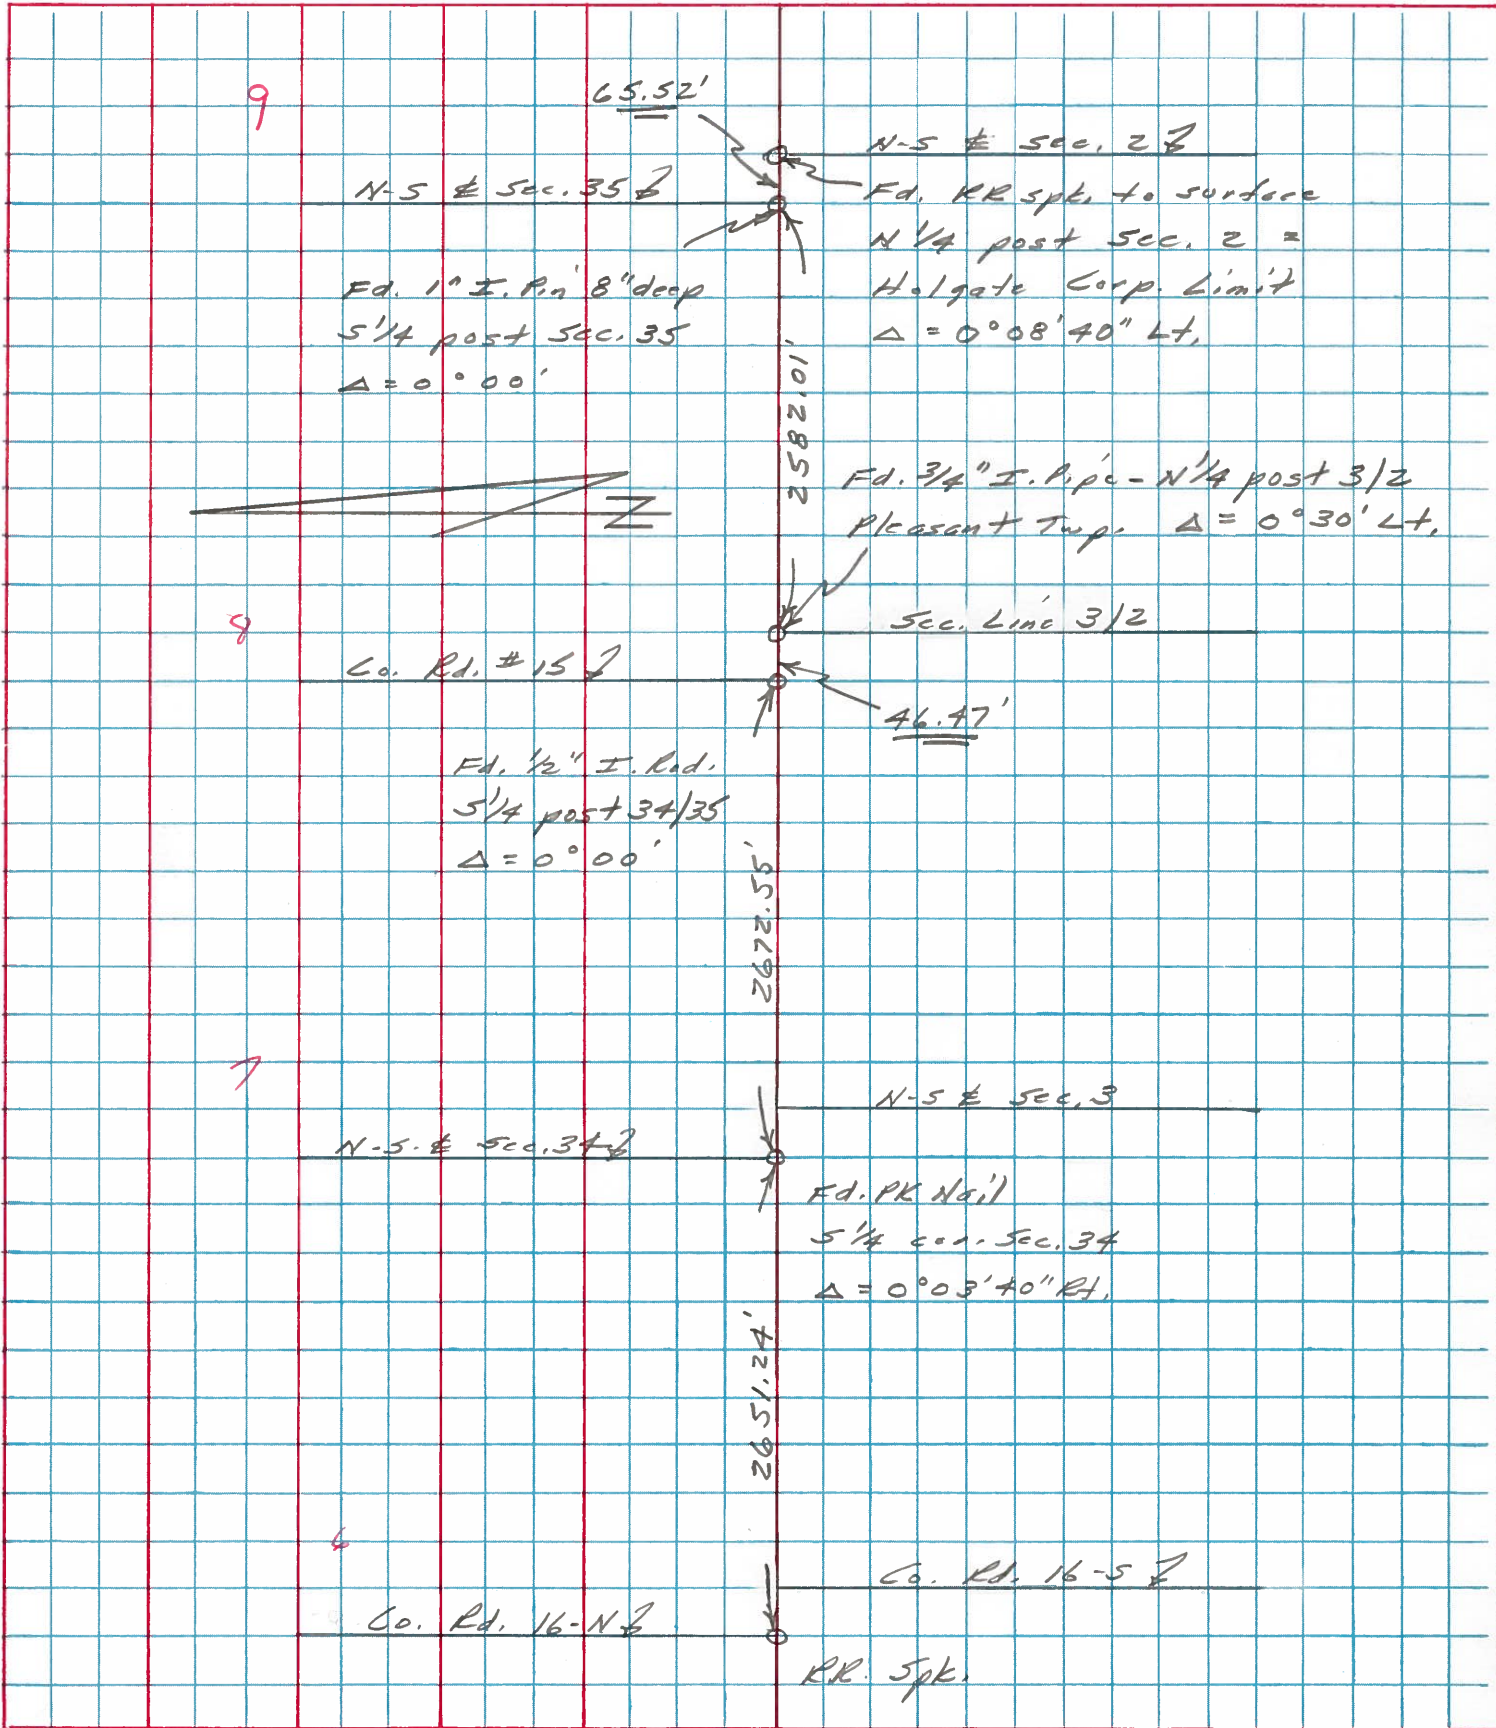 9
65.52'
N-S ℄ Sec. 2
N-S ℄ Sec. 35
Fd. RR spk. to surface
N 1/4 post Sec. 2 =
Holgate Corp. Limit
Δ = 0°08'40" Lt.
Fd. 1" I. Pin 8" deep
S 1/4 post Sec. 35
Δ = 0°00'
2582.01'
N
Fd. 3/4" I. Pipe - N 1/4 post 3/2
Pleasant Twp. Δ = 0°30' Lt.
8
Sec. Line 3/2
Co. Rd. # 15
46.47'
Fd. 1/2" I. Rod.
S 1/4 post 34/35
Δ = 0°00'
2672.55'
7
N-S ℄ Sec. 3
N-S. ℄ Sec. 34
Fd. PK Nail
S 1/4 cor. Sec. 34
Δ = 0°03'40" Rt.
2651.24'
6
Co. Rd. 16-S
Co. Rd. 16-N
RR. Spk.